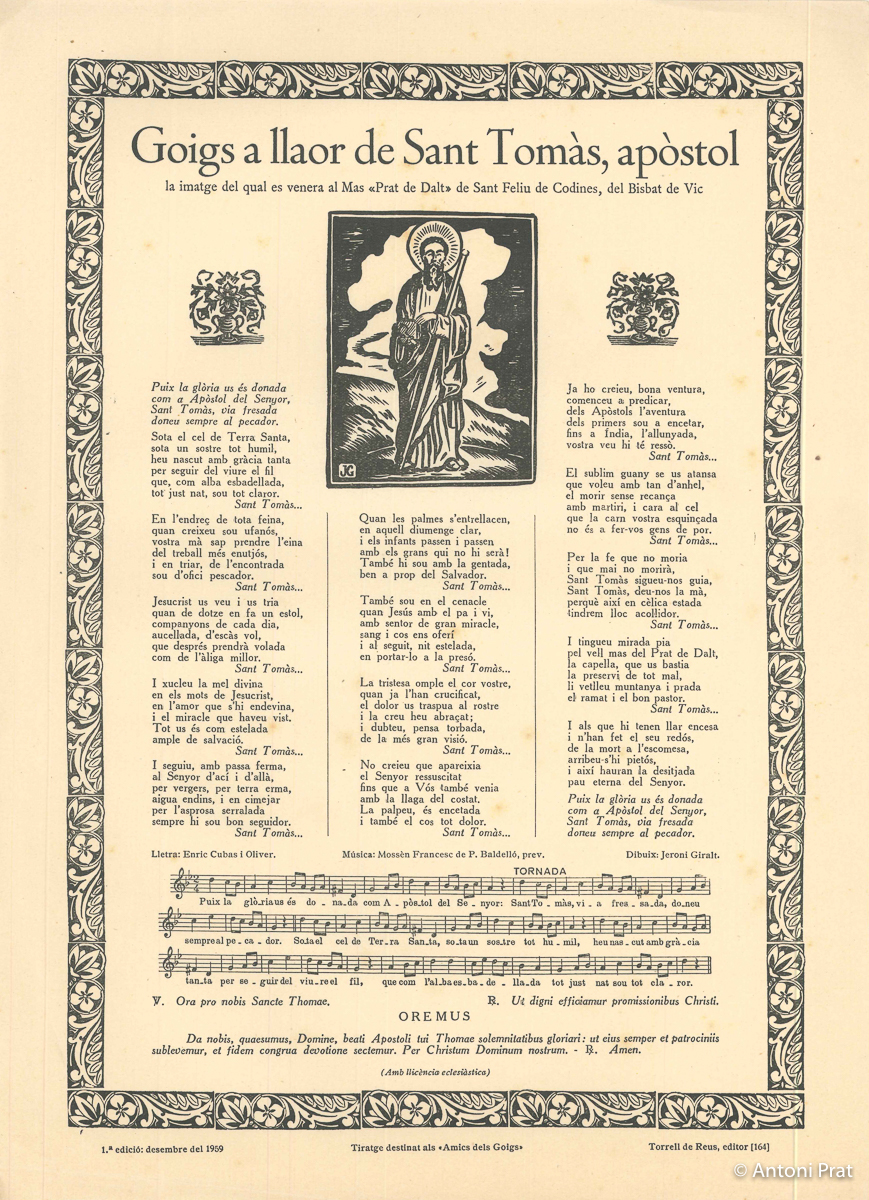 Goigs a llaor de Sant Tomàs, apòstol
la imatge del qual es venera al Mas «Prat de Dalt» de Sant Feliu de Codines, del Bisbat de Vic
JG
Puix la glòria us és donada
com a Apòstol del Senyor,
Sant Tomàs, via fresada
doneu sempre al pecador.
Sota el cel de Terra Santa,
sota un sostre tot humil,
heu nascut amb gràcia tanta
per seguir del viure el fil
que, com alba esbadellada,
tot just nat, sou tot claror.
Sant Tomàs...
En l'endreç de tota feina,
quan creixeu sou ufanós,
vostra mà sap prendre l'eina
del treball més enutjós,
i en triar, de l'encontrada
sou d'ofici pescador.
Sant Tomàs...
Jesucrist us veu i us tria
quan de dotze en fa un estol,
companyons de cada dia,
aucellada, d'escàs vol,
que després prendrà volada
com de l'àliga millor.
Sant Tomàs...
I xucleu la mel divina
en els mots de Jesucrist,
en l'amor que s'hi endevina,
i el miracle que haveu vist.
Tot us és com estelada
ample de salvació.
Sant Tomàs...
I seguiu, amb passa ferma,
al Senyor d'ací i d'allà,
per vergers, per terra erma,
aigua endins, i en cimejar
per l'asprosa serralada
sempre hi sou bon seguidor.
Sant Tomàs...
Quan les palmes s'entrellacen,
en aquell diumenge clar,
i els infants passen i passen
amb els grans qui no hi serà!
També hi sou amb la gentada,
ben a prop del Salvador.
Sant Tomàs...
També sou en el cenacle
quan Jesús amb el pa i vi,
amb sentor de gran miracle,
sang i cos ens oferí
i al seguit, nit estelada,
en portar-lo a la presó.
Sant Tomàs...
La tristesa omple el cor vostre,
quan ja l'han crucificat,
el dolor us traspua al rostre
i la creu heu abraçat;
i dubteu, pensa torbada,
de la més gran visió.
Sant Tomàs...
No creieu que apareixia
el Senyor ressuscitat
fins que a Vós també venia
amb la llaga del costat.
La palpeu, és encetada
i també el cos tot dolor.
Sant Tomàs...
Ja ho creieu, bona ventura,
comenceu a predicar,
dels Apòstols l'aventura
dels primers sou a encetar,
fins a Índia, l'allunyada,
vostra veu hi té ressò.
Sant Tomàs...
El sublim guany se us atansa
que voleu amb tan d'anhel,
el morir sense recança
amb martiri, i cara al cel
que la carn vostra esquinçada
no és a fer-vos gens de por.
Sant Tomàs...
Per la fe que no moria
i que mai no morirà,
Sant Tomàs sigueu-nos guia,
Sant Tomàs, deu-nos la mà,
perquè així en cèlica estada
tindrem lloc acollidor.
Sant Tomàs...
I tingueu mirada pia
pel vell mas del Prat de Dalt,
la capella, que us bastia
la preservi de tot mal,
li vetlleu muntanya i prada
el ramat i el bon pastor.
Sant Tomàs...
I als que hi tenen llar encesa
i n'han fet el seu redós,
de la mort a l'escomesa,
arribeu-s'hi pietós,
i així hauran la desitjada
pau eterna del Senyor.
Puix la glòria us és donada
com a Apòstol del Senyor,
Sant Tomàs, via fresada
doneu sempre al pecador.
Lletra: Enric Cubas i Oliver. Música: Mossèn Francesc de P. Baldelló, prev. Dibuix: Jeroni Giralt.
TORNADA
Puix la glò-ria us és do - na-da com A - pòs-tol del Se - nyor: Sant To - màs, vi - a fres - sa-da, do-neu
sempre al pe - ca - dor. So-ta el cel de Ter - ra San-ta, so-ta un sos-tre tot hu - mil, heu nas - cut amb grà - cia
tan-ta per se - guir del viu-re el fil, que com l'al-ba es-ba - de - lla-da tot just nat sou tot cla - ror.
℣. Ora pro nobis Sancte Thomae. ℟. Ut digni efficiamur promissionibus Christi.
OREMUS
Da nobis, quaesumus, Domine, beati Apostoli tui Thomae solemnitatibus gloriari: ut eius semper et patrociniis
sublevemur, et fidem congrua devotione sectemur. Per Christum Dominum nostrum. - ℟. Amen.
(Amb llicència eclesiàstica)
1.ª edició: desembre del 1959 Tiratge destinat als «Amics dels Goigs» Torrell de Reus, editor [164]
© Antoni Prat